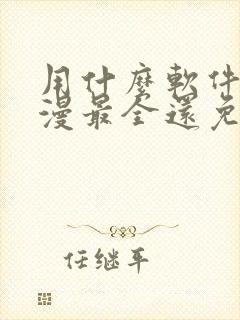 用什麼軟件
漫最全還免
任继平